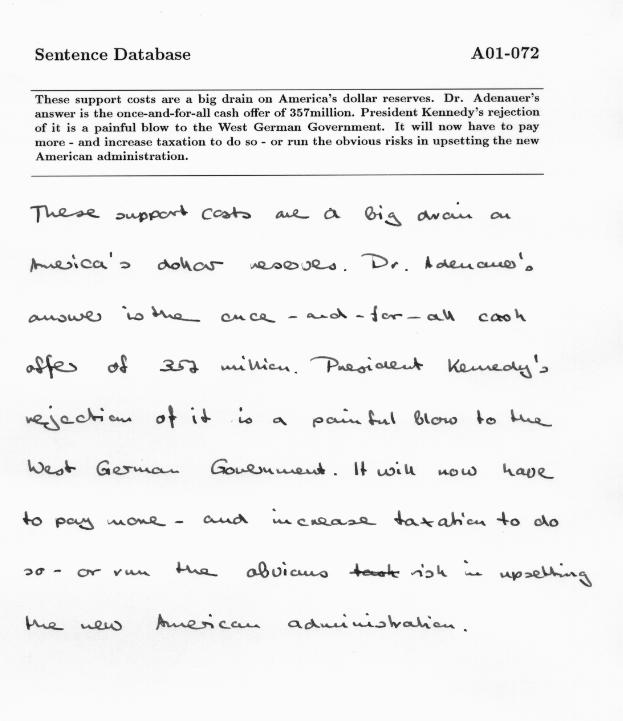 Sentence Database A01-072
These support costs are a big drain on America's dollar reserves. Dr. Adenauer's
answer is the once-and-for-all cash offer of 357million. President Kennedy's rejection
of it is a painful blow to the West German Government. It will now have to pay
more - and increase taxation to do so - or run the obvious risks in upsetting the new
American administration.
These support costs are a big drain on
America's dollar reserves. Dr. Adenauer's
answer is the once - and - for - all cash
offer of 357 million. President Kennedy's
rejection of it is a painful blow to the
West German Government. It will now have
to pay more - and increase taxation to do
so - or run the obvious risk in upsetting
the new American administration.